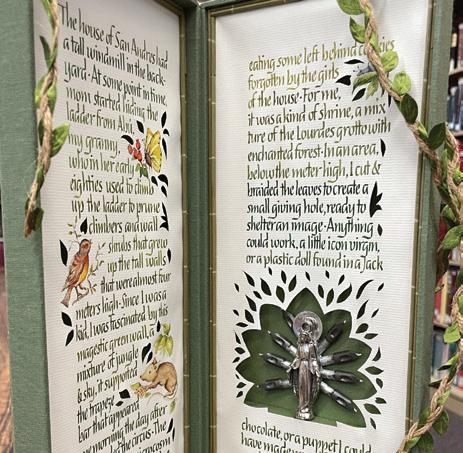 The house of San Andres had
a tall windmill in the back-
yard. At some point in time,
mom started hiding the
ladder from Abu,
my granny,
who in her early
eighties used to climb
up the ladder to prune
climbers and wall
shrubs that grew
up the tall walls
that were almost four
meters high. Since I was a
kid, I was fascinated by this
magestic green wall, a
mixture of jungle
& sky, it supported
the trapeze
bar that appeared
one morning the day after
the circus. The
eating some left behind cookies
forgotten by the girls
of the house. For me,
it was a kind of shrine, a mix
ture of the Lourdes grotto with
enchanted forest. In an area,
below the meter high, I cut &
braided the leaves to create a
small giving hole, ready to
shelter an image. Anything
could work, a little icon virgin,
or a plastic doll found in a Jack
chocolate, or a puppet I could
have made